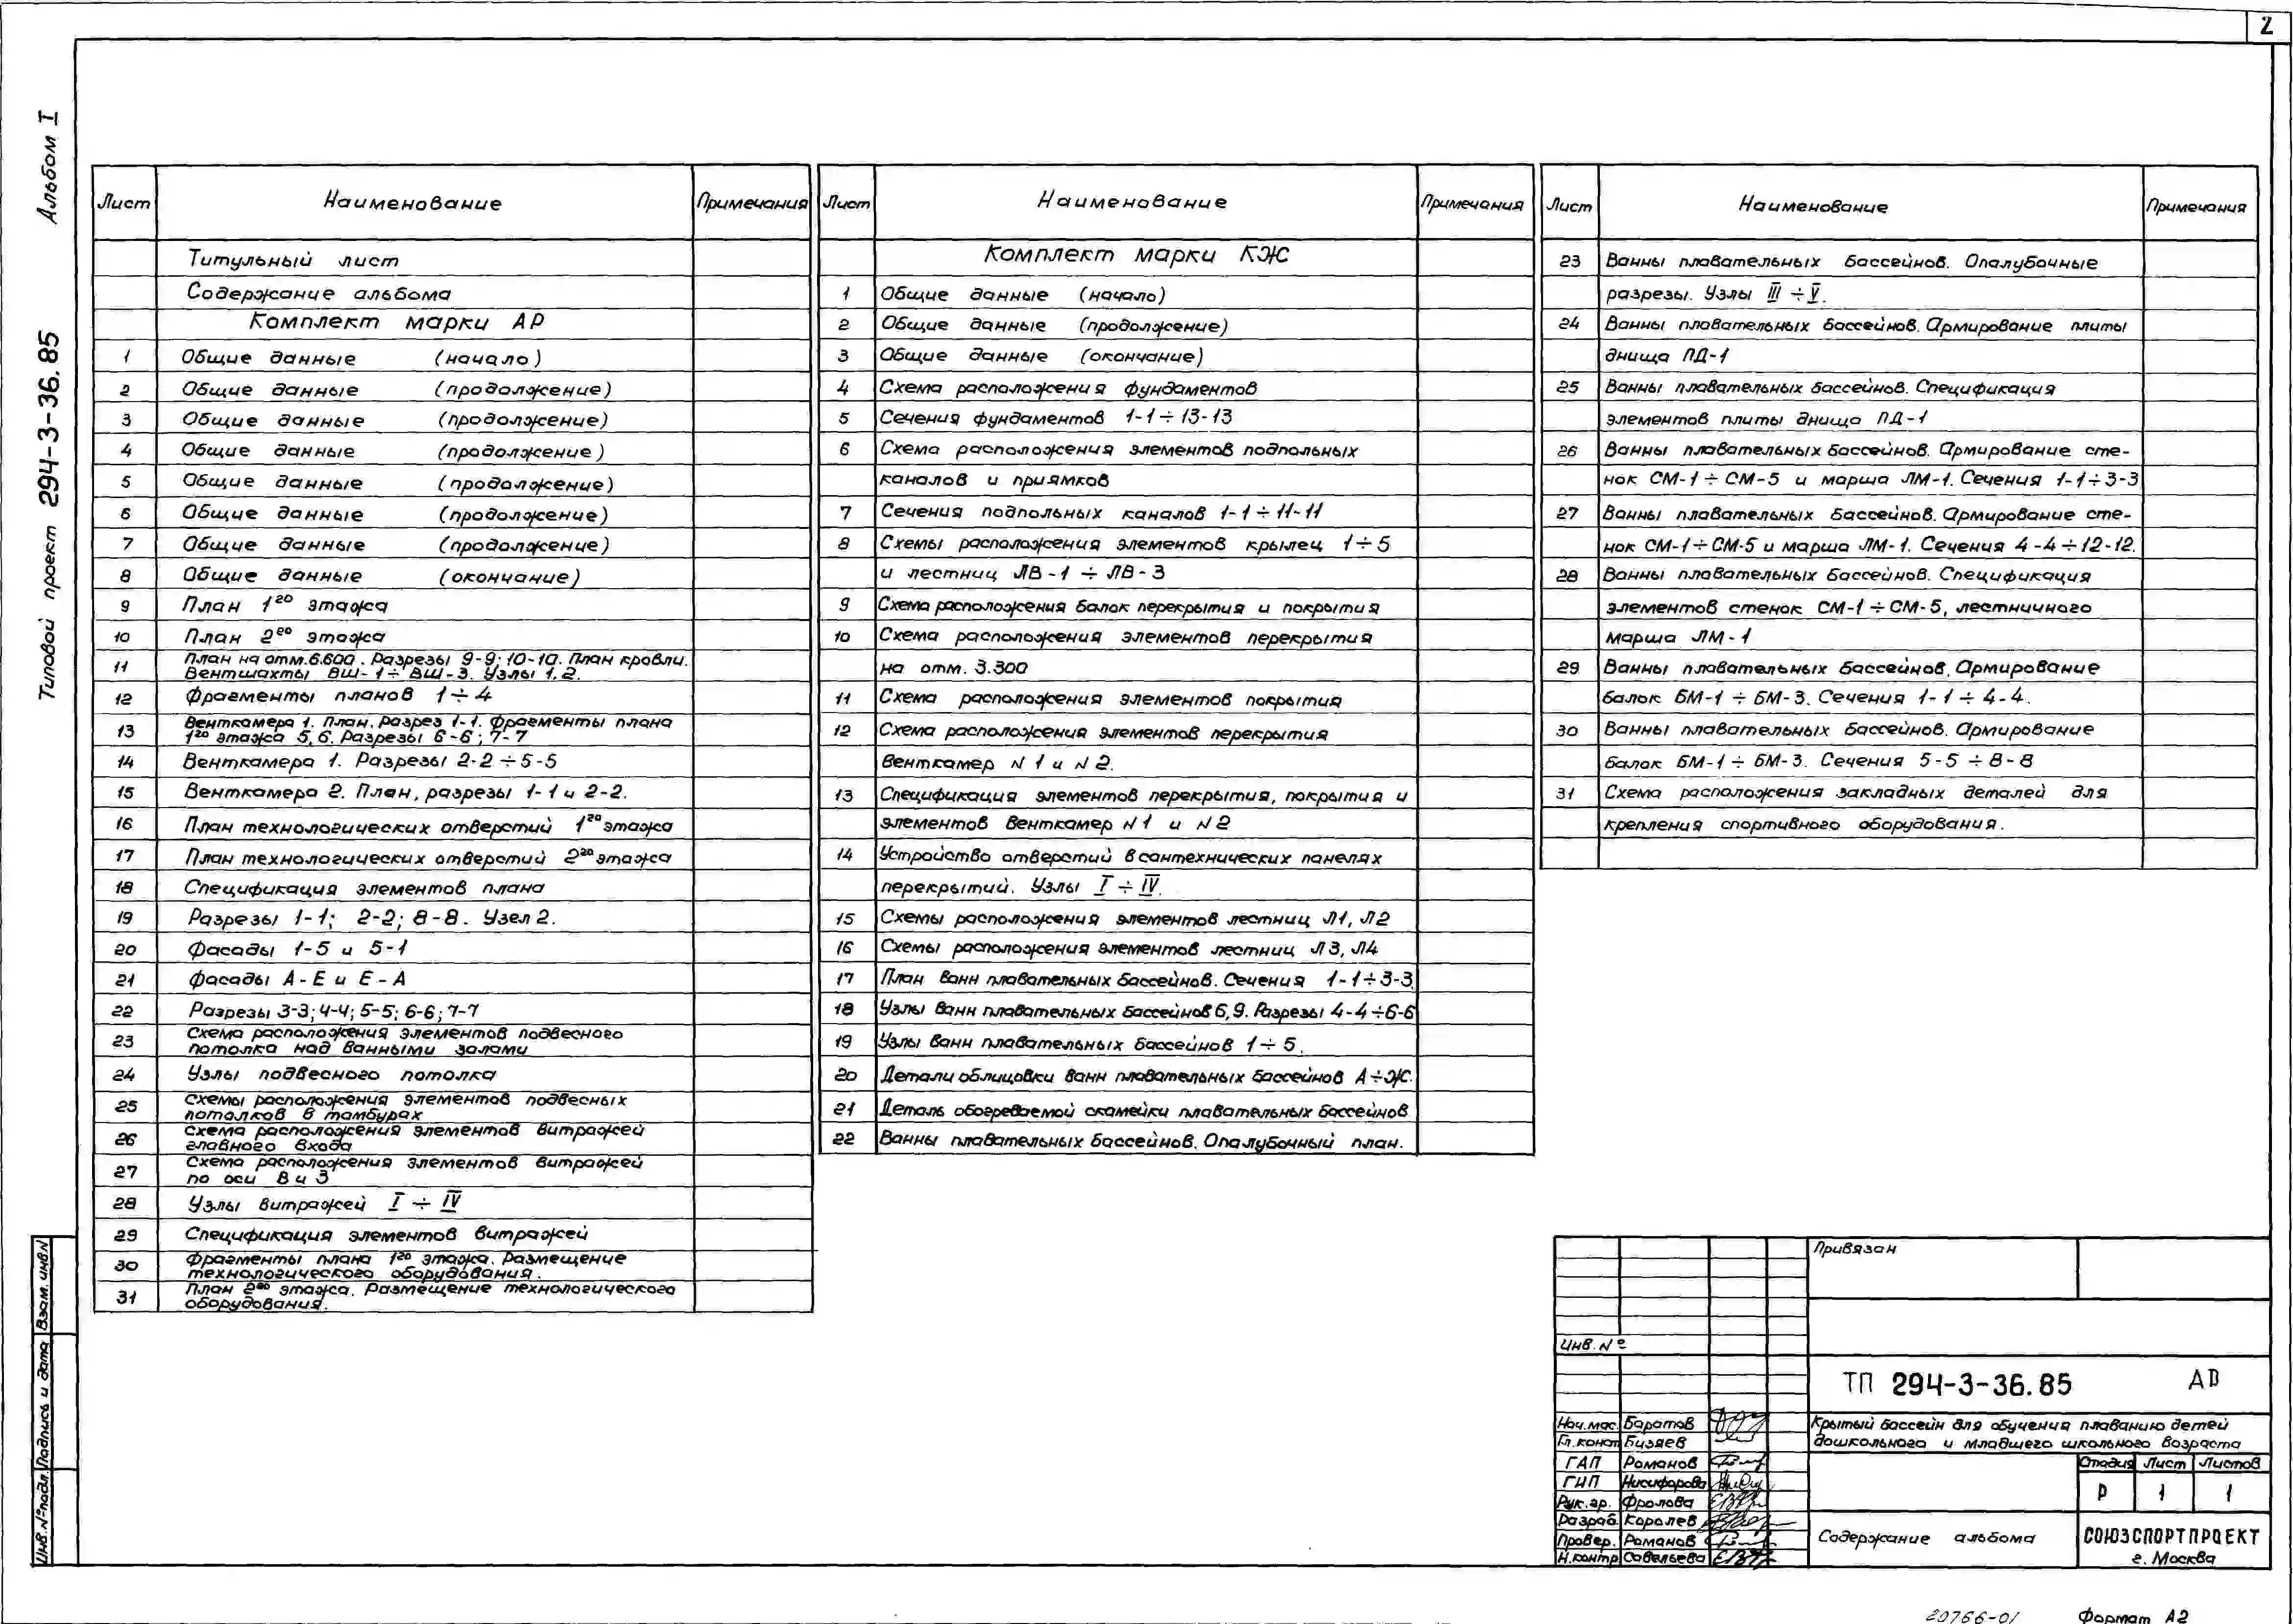 2
Альбом I
Типовой проект 294-3-36.85
Лист Наименование Примечания
Титульный лист
Содержание альбома
Комплект марки АР
1 Общие данные (начало)
2 Общие данные (продолжение)
3 Общие данные (продолжение)
4 Общие данные (продолжение)
5 Общие данные (продолжение)
6 Общие данные (продолжение)
7 Общие данные (продолжение)
8 Общие данные (окончание)
9 План 1го этажа
10 План 2го этажа
11 План на отм. 6.600. Разрезы 9-9; 10-10. План кровли.
Вентшахты ВШ-1÷ВШ-3. Узлы 1, 2.
12 Фрагменты планов 1÷4
13 Венткамера 1. План. Разрез 1-1. Фрагменты плана
1го этажа 5, 6. Разрезы 6-6; 7-7
14 Венткамера 1. Разрезы 2-2÷5-5
15 Венткамера 2. План, разрезы 1-1 и 2-2.
16 План технологических отверстий 1го этажа
17 План технологических отверстий 2го этажа
18 Спецификация элементов плана
19 Разрезы 1-1; 2-2; 8-8. Узел 2.
20 Фасады 1-5 и 5-1
21 Фасады А-Е и Е-А
22 Разрезы 3-3; 4-4; 5-5; 6-6; 7-7
23 Схема расположения элементов подвесного
потолка над ванными залами
24 Узлы подвесного потолка
25 Схемы расположения элементов подвесных
потолков в тамбурах
26 Схема расположения элементов витражей
главного входа
27 Схема расположения элементов витражей
по оси В и 3
28 Узлы витражей I ÷ IV
29 Спецификация элементов витражей
30 Фрагменты плана 1го этажа. Размещение
технологического оборудования.
31 План 2го этажа. Размещение технологического
оборудования.
Лист Наименование Примечания
Комплект марки КЖ
1 Общие данные (начало)
2 Общие данные (продолжение)
3 Общие данные (окончание)
4 Схема расположения фундаментов
5 Сечения фундаментов 1-1÷13-13
6 Схема расположения элементов подпольных
каналов и приямков
7 Сечения подпольных каналов 1-1÷11-11
8 Схемы расположения элементов крылец 1÷5
и лестниц ЛВ-1 ÷ ЛВ-3
9 Схема расположения балок перекрытия и покрытия
10 Схема расположения элементов перекрытия
на отм. 3.300
11 Схема расположения элементов покрытия
12 Схема расположения элементов перекрытия
венткамер N 1 и N 2.
13 Спецификация элементов перекрытия, покрытия и
элементов венткамер N 1 и N 2
14 Устройство отверстий в сантехнических панелях
перекрытий. Узлы I ÷ IV.
15 Схемы расположения элементов лестниц Л1, Л2
16 Схемы расположения элементов лестниц Л3, Л4
17 План ванн плавательных бассейнов. Сечения 1-1÷3-3.
18 Узлы ванн плавательных бассейнов 6, 9. Разрезы 4-4÷6-6
19 Узлы ванн плавательных бассейнов 1÷5.
20 Детали облицовки ванн плавательных бассейнов А÷Ж.
21 Деталь обогреваемой скамейки плавательных бассейнов
22 Ванны плавательных бассейнов. Опалубочный план.
Лист Наименование Примечания
23 Ванны плавательных бассейнов. Опалубочные
разрезы. Узлы III ÷ V.
24 Ванны плавательных бассейнов. Армирование плиты
днища ПД-1
25 Ванны плавательных бассейнов. Спецификация
элементов плиты днища ПД-1
26 Ванны плавательных бассейнов. Армирование сте-
нок СМ-1 ÷ СМ-5 и марша ЛМ-1. Сечения 1-1÷3-3
27 Ванны плавательных бассейнов. Армирование сте-
нок СМ-1÷СМ-5 и марша ЛМ-1. Сечения 4-4÷12-12.
28 Ванны плавательных бассейнов. Спецификация
элементов стенок СМ-1÷СМ-5, лестничного
марша ЛМ-1
29 Ванны плавательных бассейнов. Армирование
балок БМ-1 ÷ БМ-3. Сечения 1-1 ÷ 4-4.
30 Ванны плавательных бассейнов. Армирование
балок БМ-1÷ БМ-3. Сечения 5-5 ÷ 8-8
31 Схема расположения закладных деталей для
крепления спортивного оборудования.
Привязан
Инв. №
ТП 294-3-36.85 АР
Нач. мас. Баратов
Гл. конст. Бизяев
ГАП Романов
ГИП Никифорова
Рук. гр. Фролова
Разраб. Королев
Провер. Романов
Н. контр. Савельева
Крытый бассейн для обучения плаванию детей
дошкольного и младшего школьного возраста
Стадия Лист Листов
Р 1 1
Содержание альбома
СОЮЗСПОРТПРОЕКТ
г. Москва
Инв. № подл. Подпись и дата Взам. инв N
20766-01 Формат А2